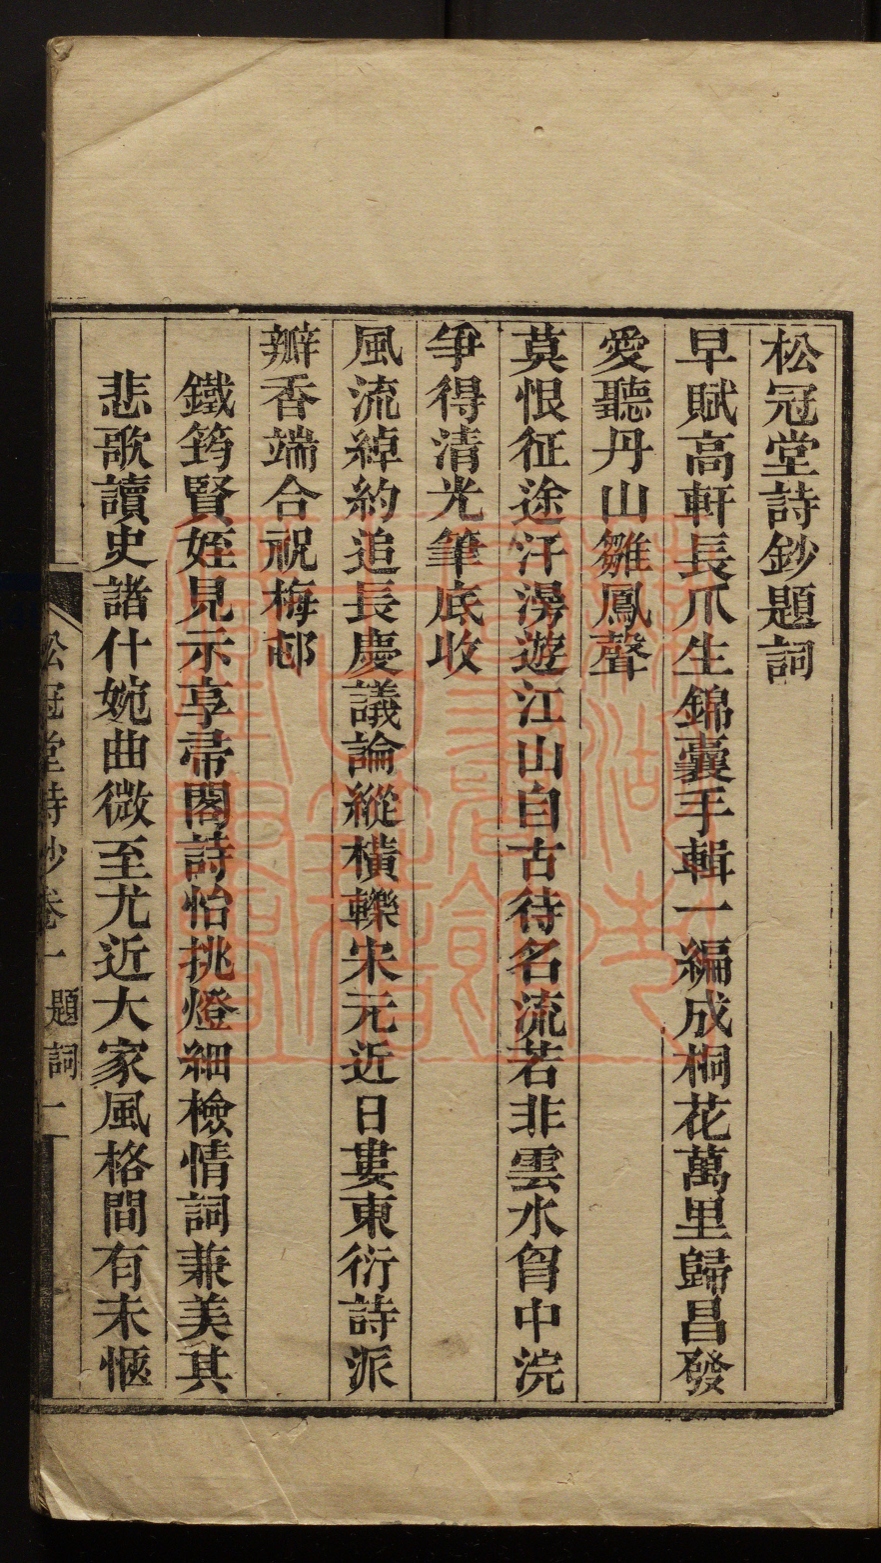 松冠堂詩鈔題詞
早賦高軒長爪生錦囊手輯一編成桐花萬里歸昌發
愛聽丹山雛鳳聲
莫恨征途汗漫遊江山自古待名流若非雲水胷中浣
爭得清光筆底收
風流綽約追長慶議論縱橫轢宋元近日婁東衍詩派
瓣香端合祝梅邨
鐵筠賢姪見示享帚閣詩怡挑燈細檢情詞兼美其
悲歌讀史諸什婉曲微至尤近大家風格間有未愜
松冠堂詩鈔卷一 題詞 一